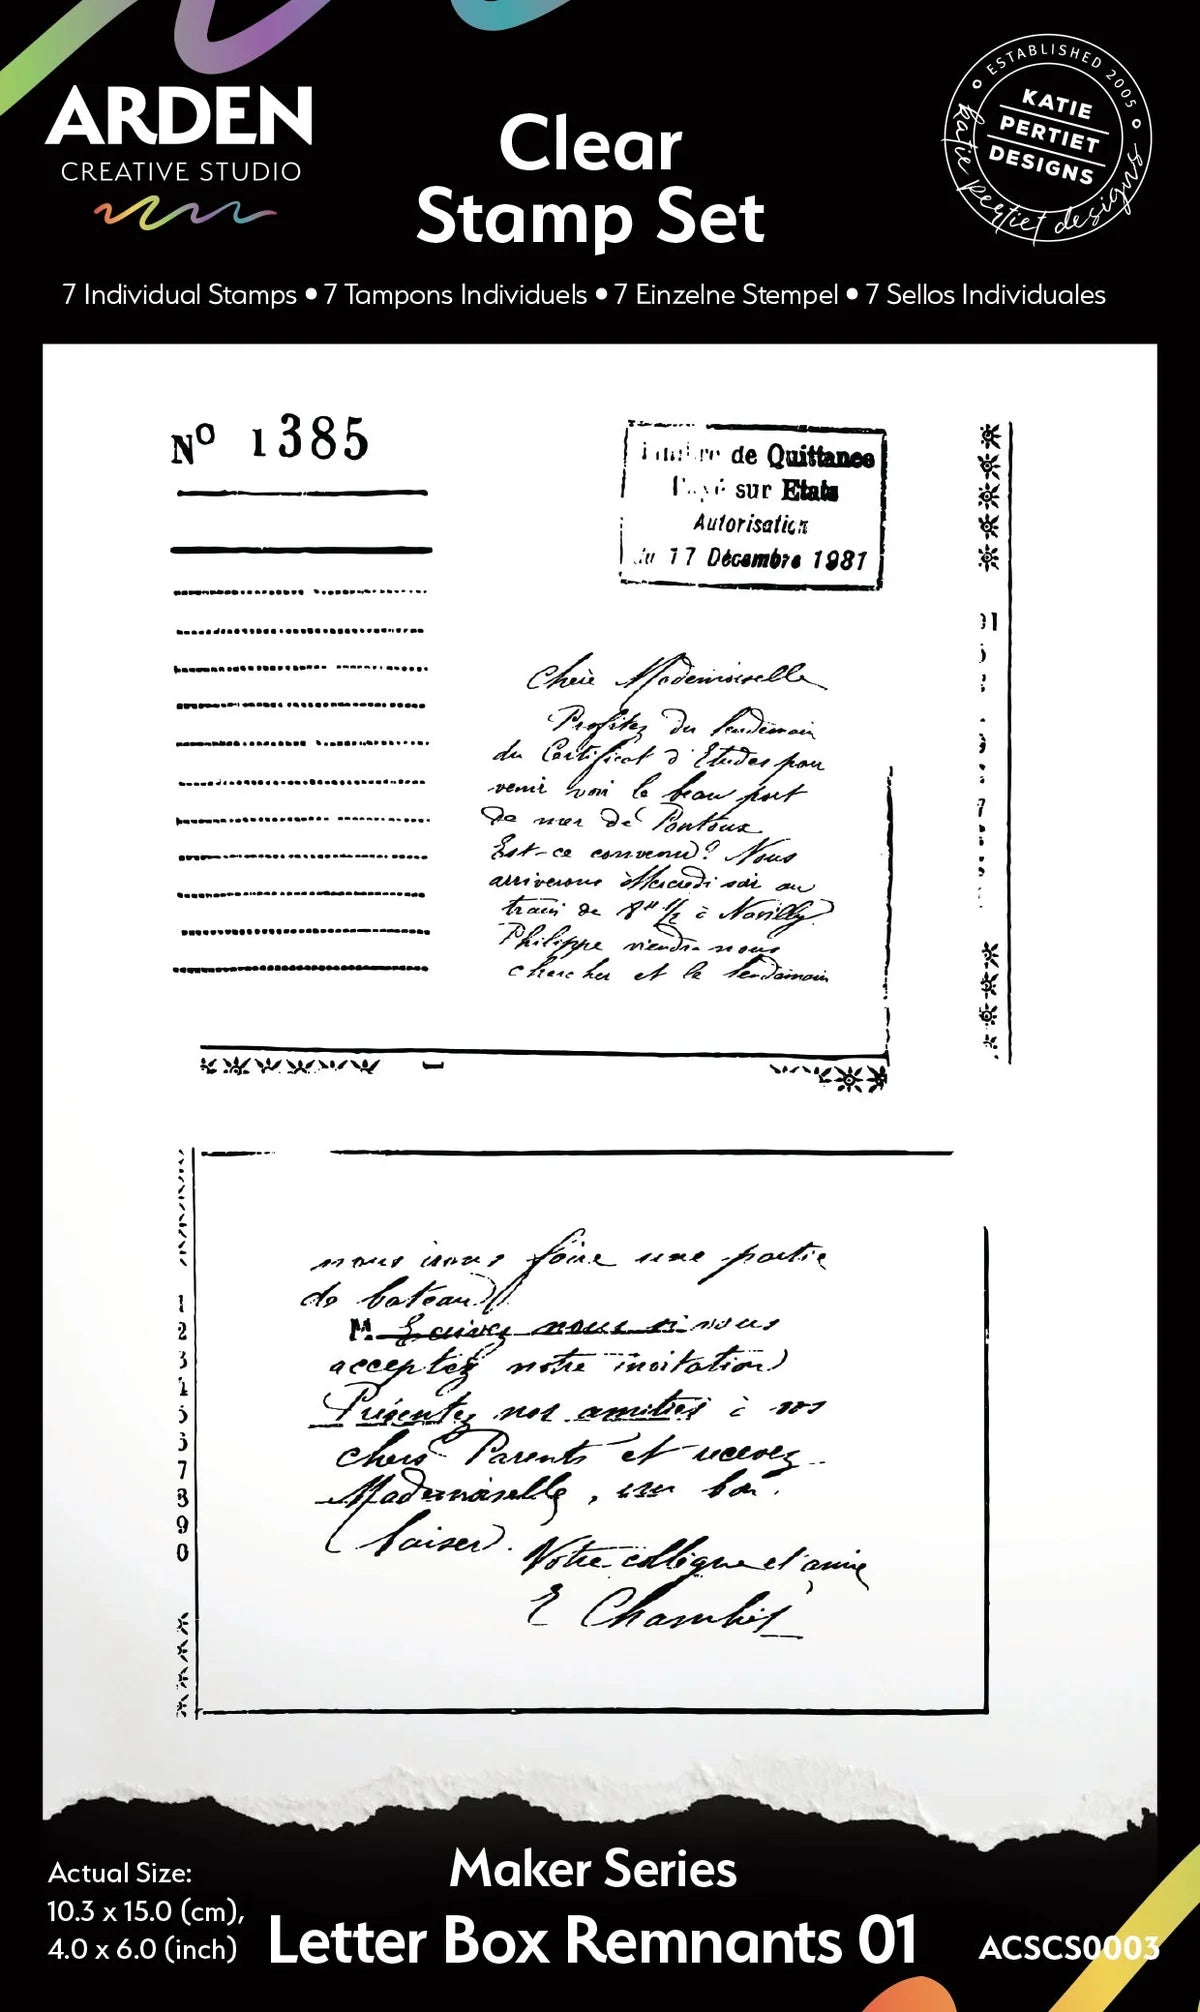 ARDEN
CREATIVE STUDIO
Clear
Stamp Set
ESTABLISHED 2005
KATIE
PERTIET
DESIGNS
katie pertiet designs
7 Individual Stamps • 7 Tampons Individuels • 7 Einzelne Stempel • 7 Sellos Individuales
Nº 1385
de Quittance
sur Etats
Autorisation
du 17 Décembre 1981
Chère Mademoiselle
Profitez du lendemain
du Certificat d'Etudes pour
venir voir le beau port
de mer de Pontoux
Est-ce convenu? Nous
arriverons Mercredi soir au
train de 8H 1/2 à Navilly
Philippe viendra nous
chercher et le lendemain
nous irons faire une partie
de bateau
M. Ecrivez nous si vous
acceptez notre invitation
Présentez nos amitiés à vos
chers Parents et recevez
Mademoiselle, un bon
baiser.
Votre collègue et amie
E
1
2
3
7
8
9
0
Actual Size:
10.3 x 15.0 (cm),
4.0 x 6.0 (inch)
Maker Series
Letter Box Remnants 01
ACSCS0003